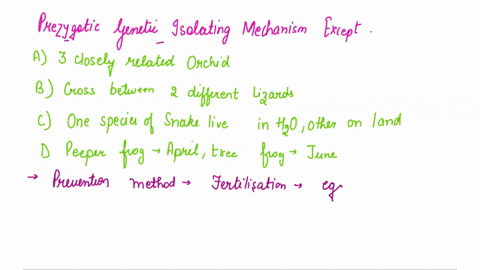 Prezygotic Genetic Isolating Mechanism Except.
A) 3 closely related Orchid
B) Cross between 2 different lizards
C) One species of Snake live in H2O, other on land
D Peeper frog → April, tree frog → June
→ Prevention method → Fertilisation → eg